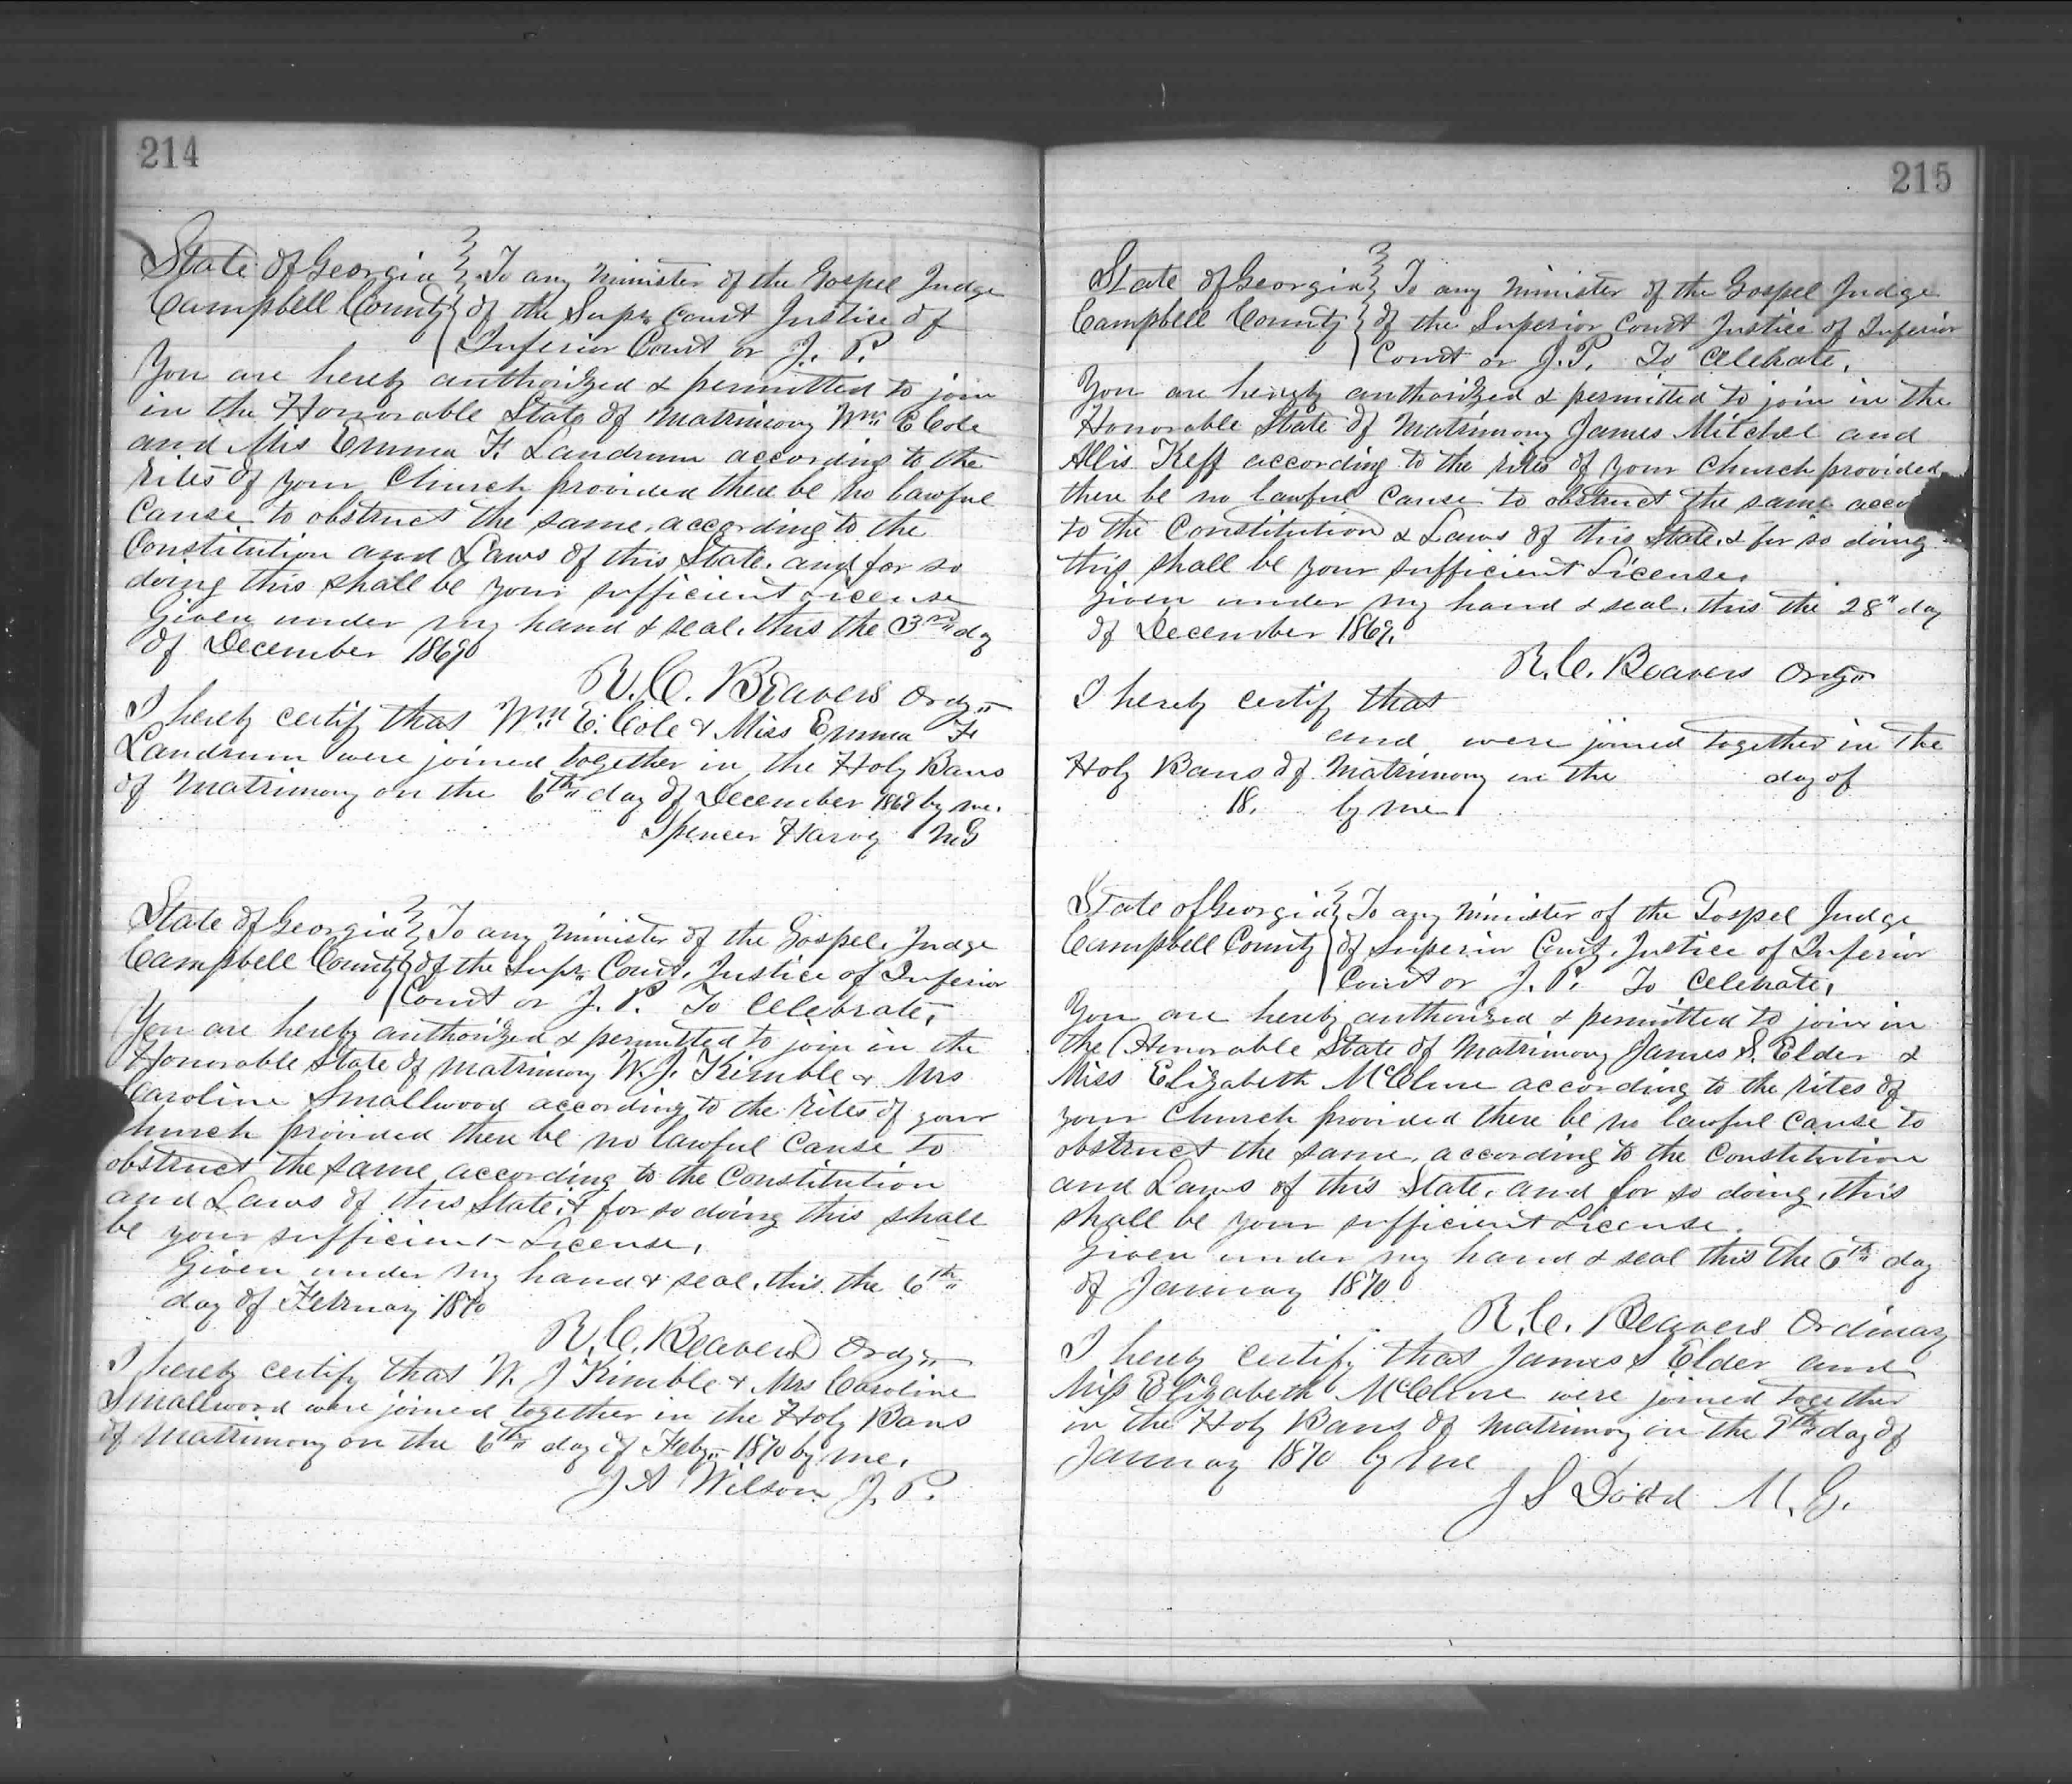 214
State of Georgia } To any Minister of the Gospel Judge
Campbell County } of the Supr. Court Justice of
Inferior Court or J. P.
You are hereby authorized & permitted to join
in the Honorable State of Matrimony Wm. E Cole
and Mrs Emma F. Landrum according to the
rites of your Church provided there be no lawful
Cause to obstruct the same, according to the
Constitution and Laws of this State, and for so
doing this shall be your sufficient License
Given under my hand & seal, this the 3rd dy
of December 1869
R. C. Beavers Ordy
I hereby certify that Wm. E. Cole & Miss Emma F
Landrum were joined together in the Holy Bans
of Matrimony on the 6th day of December 1869 by me.
Spencer Harvey MG
State of Georgia } To any Minister of the Gospel, Judge
Campbell County } of the Supr. Court, Justice of Inferior
Court or J. P. To Celebrate,
You are hereby authorized & permitted to join in the
Honorable State of Matrimony W. J. Kimble & Mrs
Caroline Smallwood according to the rites of your
hurch provided there be no lawful Cause to
obstruct the same according to the Constitution
and Laws of this State, & for so doing this shall
be your sufficient License,
Given under my hand & seal, this the 6th
day of February 1870
R. C. Beavers Ordy
I hereby certify that W. J Kimble & Mrs Caroline
Smallwood were joined together in the Holy Bans
of Matrimony on the 6th day of Feby 1870 by me,
J A Wilson J. P.
215
State of Georgia } To any Minister of the Gospel Judge
Campbell County } of the Superior Court Justice of Inferior
Court or J. P. To Celebrate,
You are hereby authorized & permitted to join in the
Honorable State of Matrimony James Mitchel and
Allis Keff according to the rites of your Church provided
there be no lawful Cause to obstruct the same acco
to the Constitution & Laws of this State, & for so doing
this shall be your sufficient License,
Given under my hand & seal, this the 28" day
of December 1869,
R. C. Beavers Ordy
I hereby certify that
and were joined together in the
Holy Bans of Matrimony on the day of
18. by me
State of Georgia } To any Minister of the Gospel Judge
Campbell County } of Superior Court, Justice of Inferior
Court or J. P. To Celebrate,
You are hereby authorized & permitted to join in
the Honorable State of Matrimony James S. Elder &
Miss Elizabeth McClure according to the rites of
your Church provided there be no lawful Cause to
obstruct the same, according to the Constitution
and Laws of this State, and for so doing, this
shall be your sufficient License.
Given under my hand & seal this the 6th day
of January 1870
R. C. Beavers Ordinary
I hereby certify that James S Elder and
Miss Elizabeth McClure were joined together
in the Holy Bans of Matrimony on the 9th day of
January 1870 by me
J S Dodd M. G.